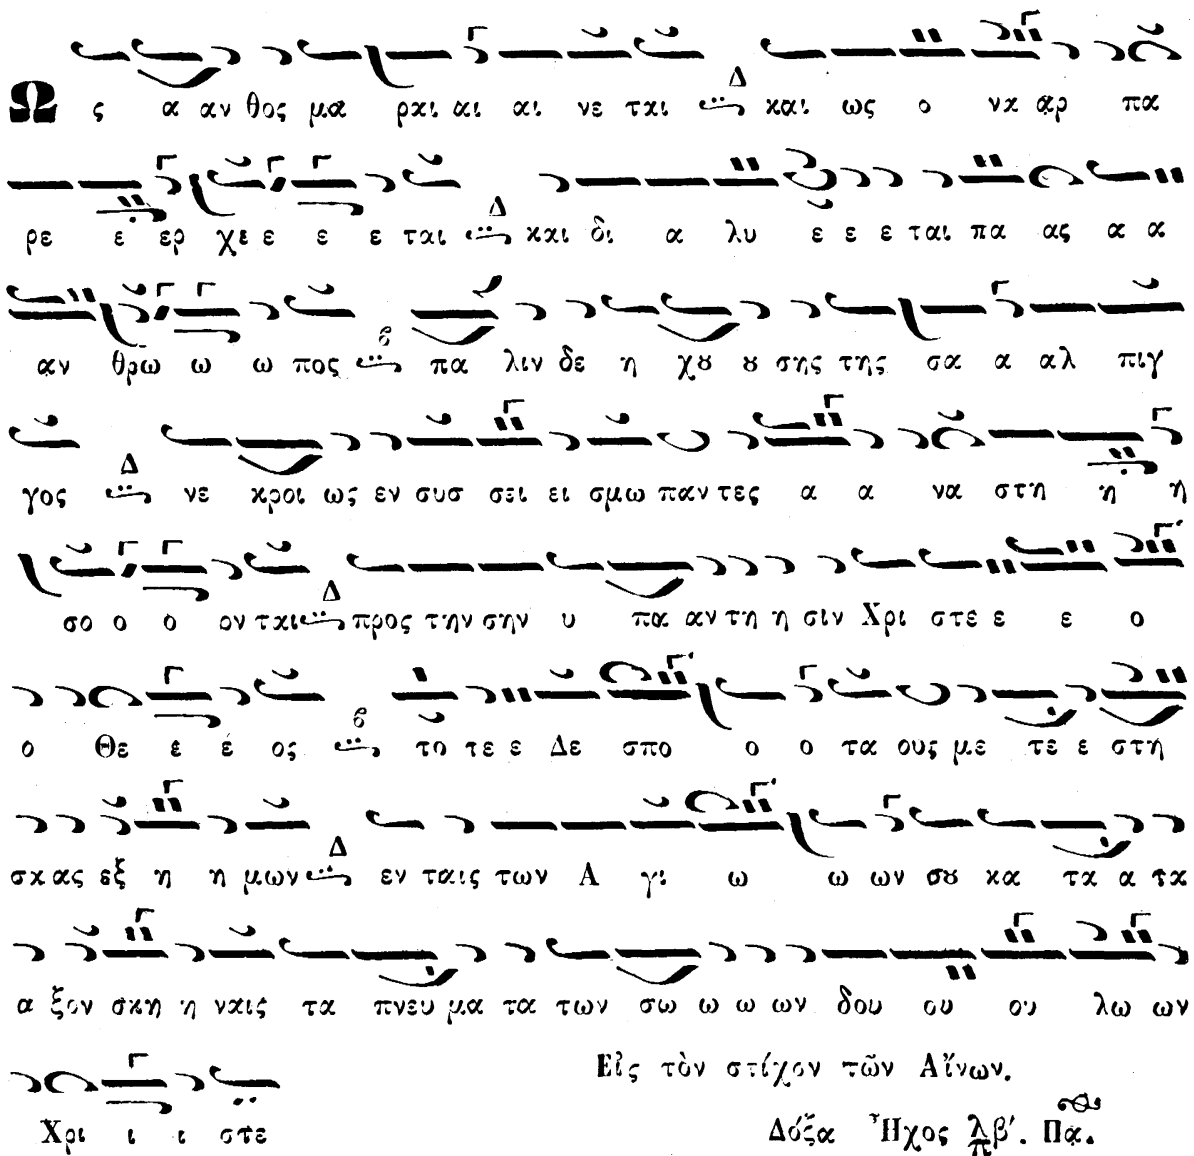 Ως α αν θος μα ραι αι αι νε ται Δ και ως ο να αρ πα
ρε ε ερ χε ε ε ε ται Δ και δι α λυ ε ε ε ται πα ας α α
αν θρω ω ω πος β πα λιν δε η χȣ ȣ σης της σα α αλ πιγ
γος Δ νε κροι ως εν συσ σει ει σμω παν τες α α να στη η η
σο ο ο ον ται Δ προς την σην υ πα αν τη η σιν Χρι στε ε ε ο
ο Θε ε ε ος β το τε ε Δε σπο ο ο τα ους με τε ε στη
σκας εξ η η μων Δ εν ταις των Α γι ω ω ων σȣ κα τα α τα
α ξον σκη η ναις τα πνευ μα τα των σω ω ω ων δου ου ου λω ων
Χρι ι ι στε
Εἰς τὸν στίχον τῶν Αἴνων.
Δόξα Ἦχος λπ β΄. Πα.